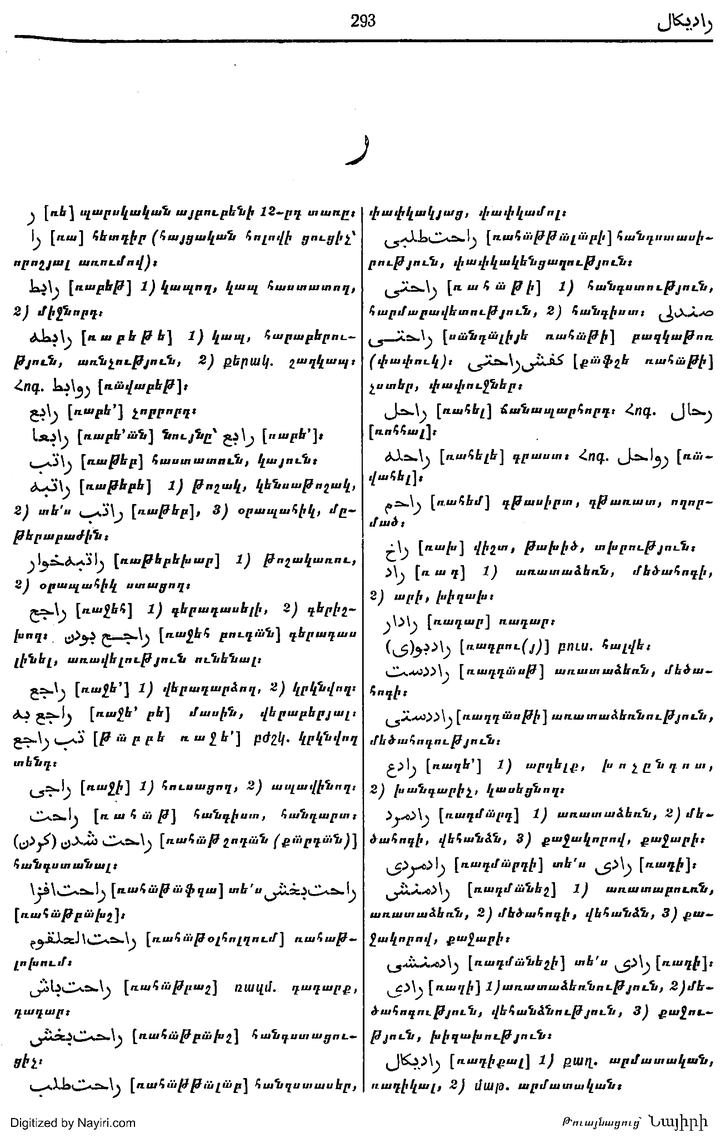 293 رادیکال
ر
ر [ռե] պարսկական այբուբենի 12-րդ տառը։
را [ռա] հետդիր (հայցական հոլովի ցուցիչ՝
որոշյալ առումով)։
رابط [ռաբեթ] 1) կապող, կապ հաստատող,
2) միջնորդ։
رابطه [ռաբեթե] 1) կապ, հարաբերու-
թյուն, առնչություն, 2) քերակ. շաղկապ։
Հոգ. روابط [ռավաբեթ]։
رابع [ռաբե՛] չորրորդ։
رابعا [ռաբե՛ան] նույնը՝ رابع [ռաբե՛]։
راتب [ռաթեբ] հաստատուն, կայուն։
راتبه [ռաթեբե] 1) թոշակ, կենսաթոշակ,
2) տե՛ս راتب [ռաթեբ], 3) օրապահիկ, մը-
թերաբաժին։
راتبه‌خوار [ռաթեբեխար] 1) թոշակառու,
2) օրապահիկ ստացող։
راجح [ռաջեհ] 1) գերադասելի, 2) գերիշ-
խող։ راجح بودن [ռաջեհ բուդան] գերադաս
լինել, առավելություն ունենալ։
راجع [ռաջե՛] 1) վերադարձող, 2) կրկնվող։
راجع به [ռաջե՛ բե] մասին, վերաբերյալ։
تب راجع [թաբբե ռաջե՛] բժշկ. կրկնվող
տենդ։
راجی [ռաջի] 1) հուսացող, 2) ապավինող։
راحت [ռահաթ] հանգիստ, հանդարտ։
راحت شدن (کردن) [ռահաթ շոդան (քարդան)]
հանգստանալ։
راحت‌افزا [ռահաթաֆզա] տե՛ս راحت‌بخش
[ռահաթբախշ]։
راحت‌الحلقوم [ռահաթօլհոլղում] ռահաթ-
լոխում։
راحت‌باش [ռահաթբաշ] ռազմ. դադարք,
դադար։
راحت‌بخش [ռահաթբախշ] հանգստացու-
ցիչ։
راحت‌طلب [ռահաթթալաբ] հանգստասեր,
փափկակյաց, փափկամոլ։
راحت‌طلبی [ռահաթթալաբի] հանգստասի-
րություն, փափկակենցաղություն։
راحتی [ռահաթի] 1) հանգստություն,
հարմարավետություն, 2) հանգիստ։ صندلی
راحتی [սանդալիյե ռահաթի] բազկաթոռ
(փափուկ)։ کفش راحتی [քաֆշե ռահաթի]
չստեր, փափուչներ։
راحل [ռահել] ճանապարհորդ։ Հոգ. رحال
[ռոհհալ]։
راحله [ռահելե] գրաստ։ Հոգ. رواحل [ռա-
վահել]։
راحم [ռահեմ] գթասիրտ, գթառատ, ողոր-
մած։
راخ [ռախ] վիշտ, թախիծ, տխրություն։
راد [ռադ] 1) առատաձեռն, մեծահոգի,
2) արի, խիզախ։
رادار [ռադար] ռադար։
رادبو(ی) [ռադբու(յ)] բուս. հալվե։
راددست [ռադդասթ] առատաձեռն, մեծա-
հոգի։
راددستی [ռադդասթի] առատաձեռնություն,
մեծահոգություն։
رادع [ռադե՛] 1) արգելք, խոչընդոտ,
2) խանգարիչ, կասեցնող։
رادمرد [ռադմարդ] 1) առատաձեռն, 2) մե-
ծահոգի, վեհանձն, 3) քաջակորով, քաջարի։
رادمردی [ռադմարդի] տե՛ս رادی [ռադի]։
رادمنش [ռադմանեշ] 1) առատաբուռն,
առատաձեռն, 2) մեծահոգի, վեհանձն, 3) քա-
ջակորով, քաջարի։
رادمنشی [ռադմանեշի] տե՛ս رادی [ռադի]։
رادی [ռադի] 1) առատաձեռնություն, 2) մե-
ծահոգություն, վեհանձնություն, 3) քաջու-
թյուն, խիզախություն։
رادیکال [ռադիքալ] 1) քաղ. արմատական,
ռադիկալ, 2) մաթ. արմատական։
Digitized by Nayiri.com Թուայնացուց՝ Նայիրի